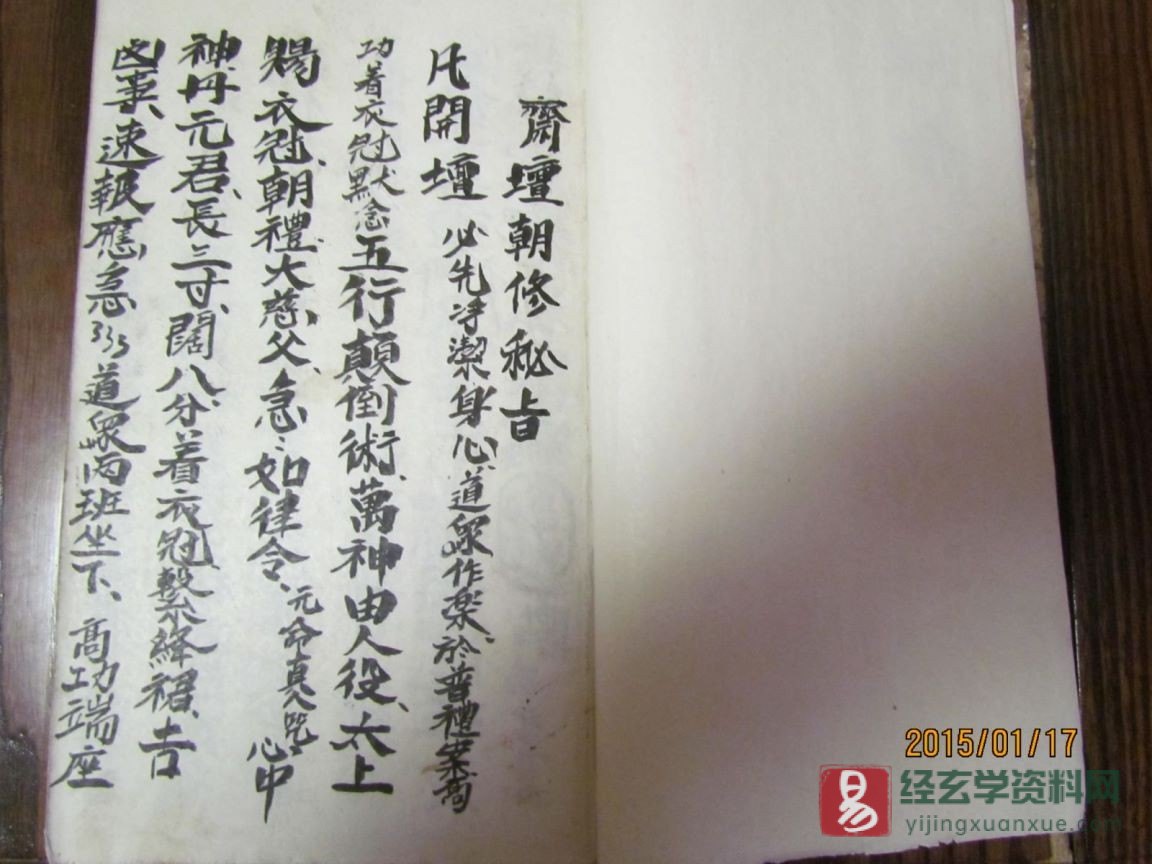 齋壇朝修秘旨
凡開壇必先净潔身心道眾作楽於普禮案高
功着衣冠默念五行顛倒術萬神由人役太上
賜衣冠朝禮大慈父急〻如律令元命真人咒心中
神丹元君長三寸闊八分着衣冠繫絳裙吉
凶事速報應急道眾両班坐下高功端座
2015/01/17
易
经玄学资料网
yijingxuanxue.com